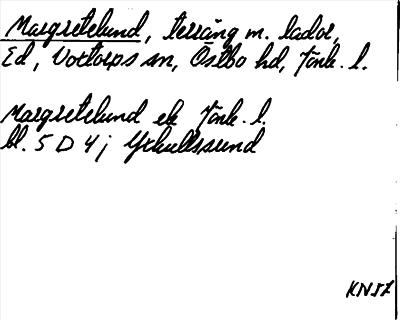 Margretelund, terräng m. lador,
Ed, Voxtorps sn, Östbo hd, Jönk. l.
Margretelund ek Jönk. l.
bl. 5 D 4 j Yxkullssund
KNSZ